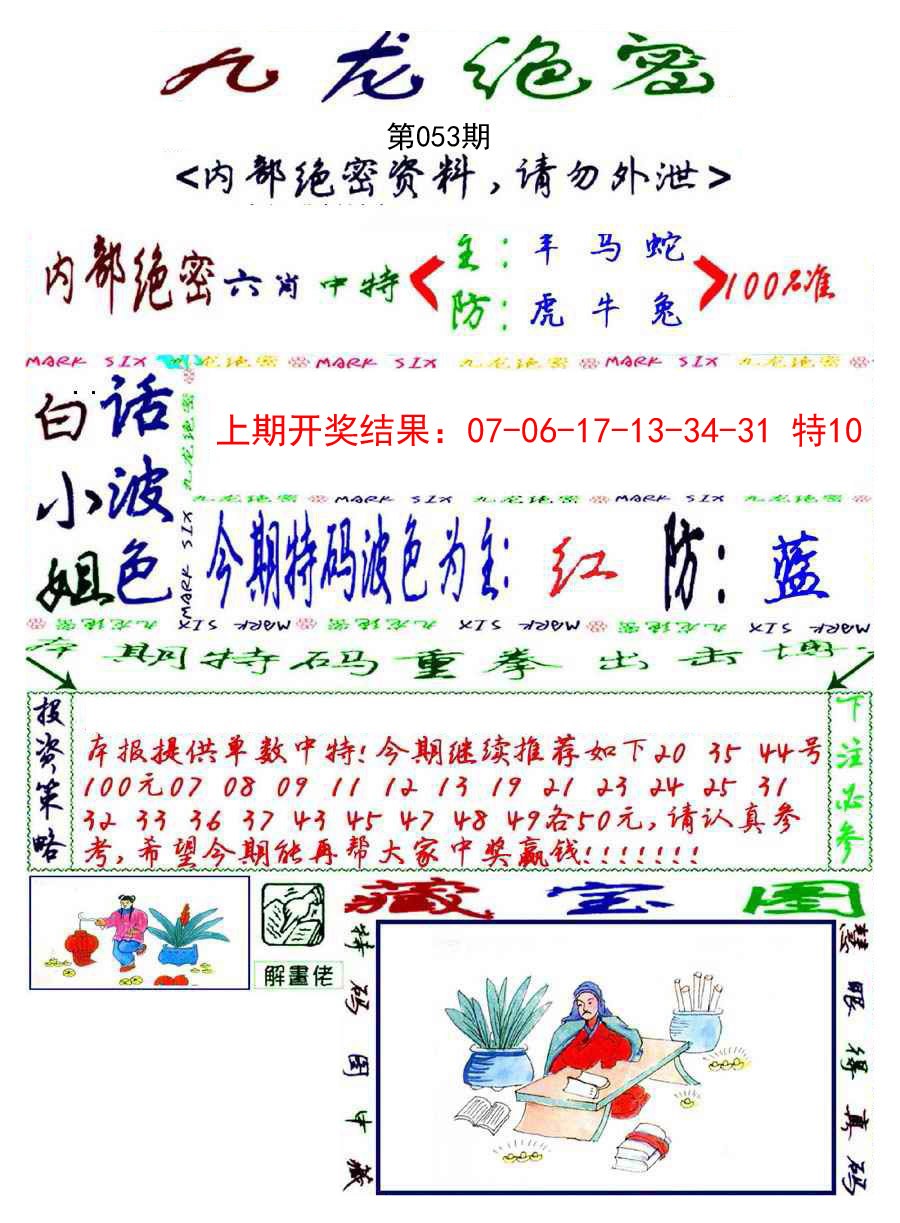 九龙绝密
第053期
<内部绝密资料,请勿外泄>
内部绝密六肖中特
主:羊马蛇
防:虎牛兔
100%准
MARK SIX 九龙绝密 MARK SIX 九龙绝密 MARK SIX 九龙绝密
白话
小波
姐色
九龙绝密
MARK SIX
上期开奖结果：07-06-17-13-34-31 特10
九龙绝密 MARK SIX 九龙绝密 MARK SIX 九龙绝密
今期特码波色为主:红 防:蓝
九龙绝密 MARK SIX 九龙绝密 MARK SIX 九龙绝密 MARK SIX
本期特码重拳出击
投资策略
本报提供单数中特!今期继续推荐如下20 35 44号
100元07 08 09 11 12 13 19 21 23 24 25 31
32 33 36 37 43 45 47 48 49各50元,请认真参
考,希望今期能再帮大家中奖赢钱!!!!!!!
下注必参
解畫佬
藏宝图
特码图中藏
慧眼得真码